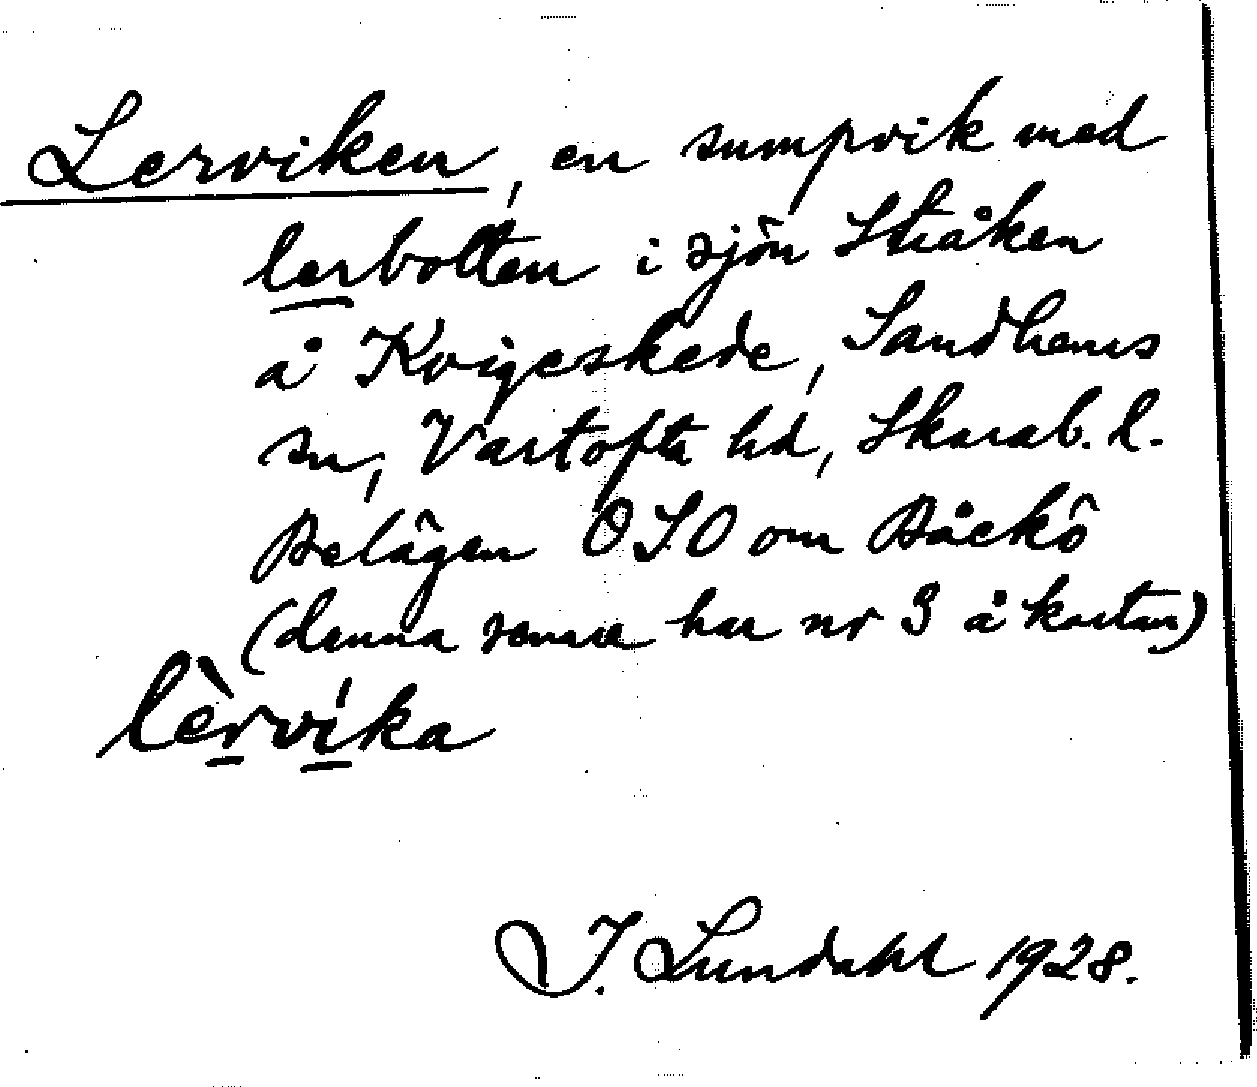 Lerviken, en sumpvik med
lerbotten i sjön Stråken
å Kvigeskede, Sandhems
sn, Vartofta hd, Skarab. l.
Belägen OSO om Båckö
(denna senare har nr 3 å kartan)
lèrvíka
J. Lundahl 1928.